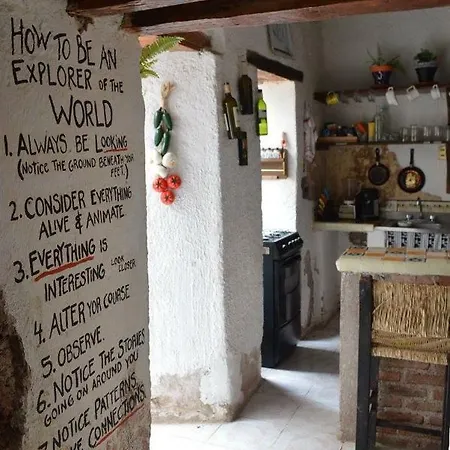 HOW TO BE AN
EXPLORER OF THE
WORLD
1. ALWAYS BE LOOKING
(NOTICE THE GROUND BENEATH YOUR
FEET.)
2. CONSIDER EVERYTHING
ALIVE & ANIMATE
3. EVERYTHING IS
INTERESTING LOOK
CLOSER
4. ALTER YOR COURSE
5. OBSERVE.
6. NOTICE THE STORIES
GOING ON AROUND YOU
7. NOTICE PATTERNS
CONNECTIONS